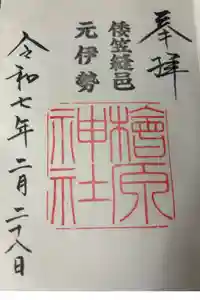 奉拝
倭笠縫邑
元伊勢
檜原
神社
令和七年二月二十八日